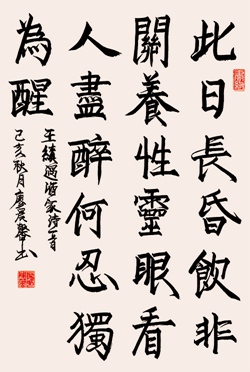 此日長昏飲非
關養性靈眼看
人盡醉何忍獨
為醒
王績過酒家詩一首
己亥秋月